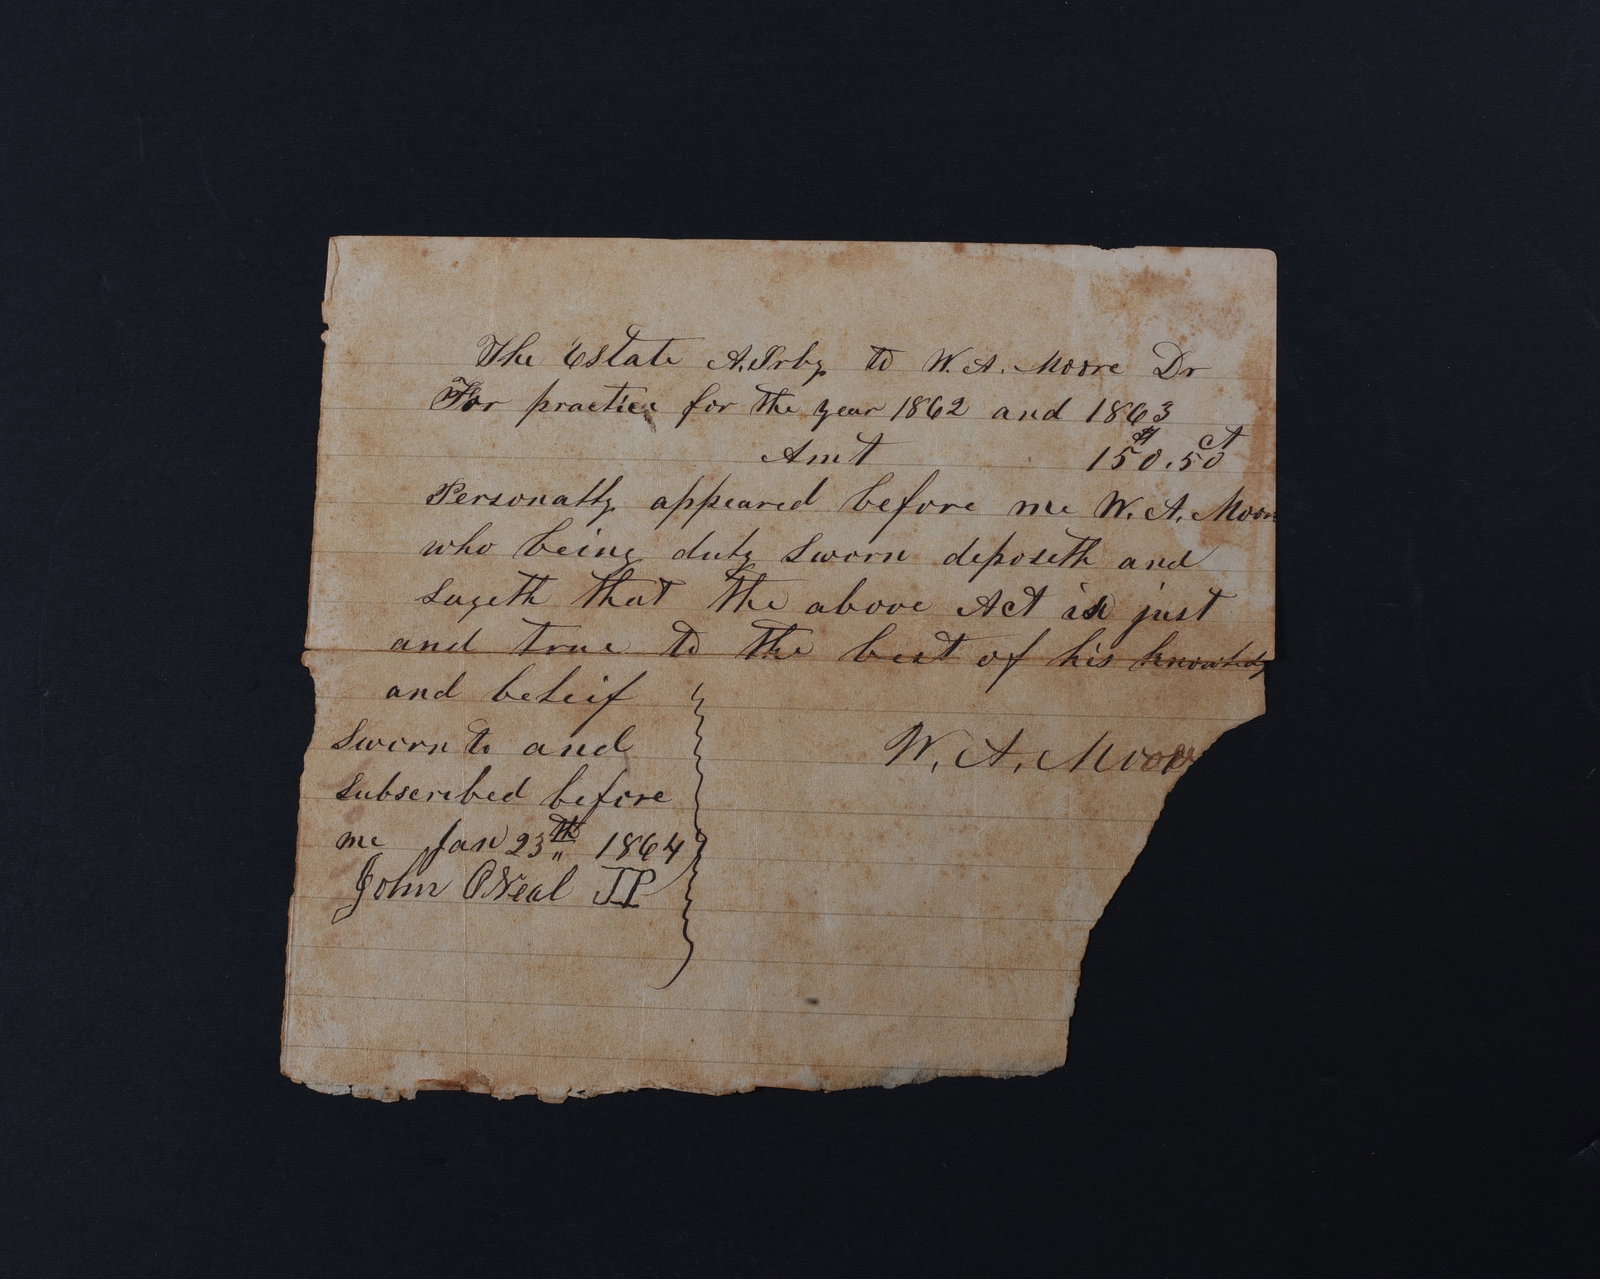 The Estate A. Irby to W. A. Moore Dr
For practice for the year 1862 and 1863
Amt 150.50 $ ct
Personally appeared before me W. A. Moore
who being duly sworn deposeth and
sayeth that the above Act is just
and true to the best of his knowledg
and beleif
Sworn to and
subscribed before
me Jan 23th 1864
John ONeal JP
W. A. Moore